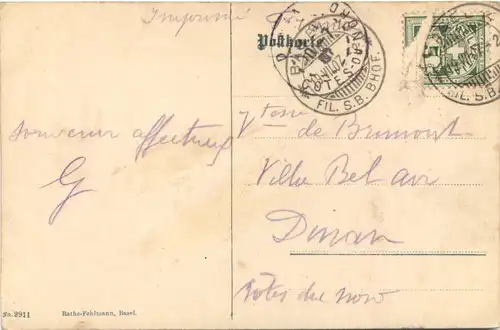 Imprimé
Postkarte
FIL. S.B. BHOF.
FIL. S.B.
souvenir affectueux
G
Vtesse de Brémont
Villa Bel air
Dinan
Côtes du nord
No. 2911
Rathe-Fehlmann, Basel.